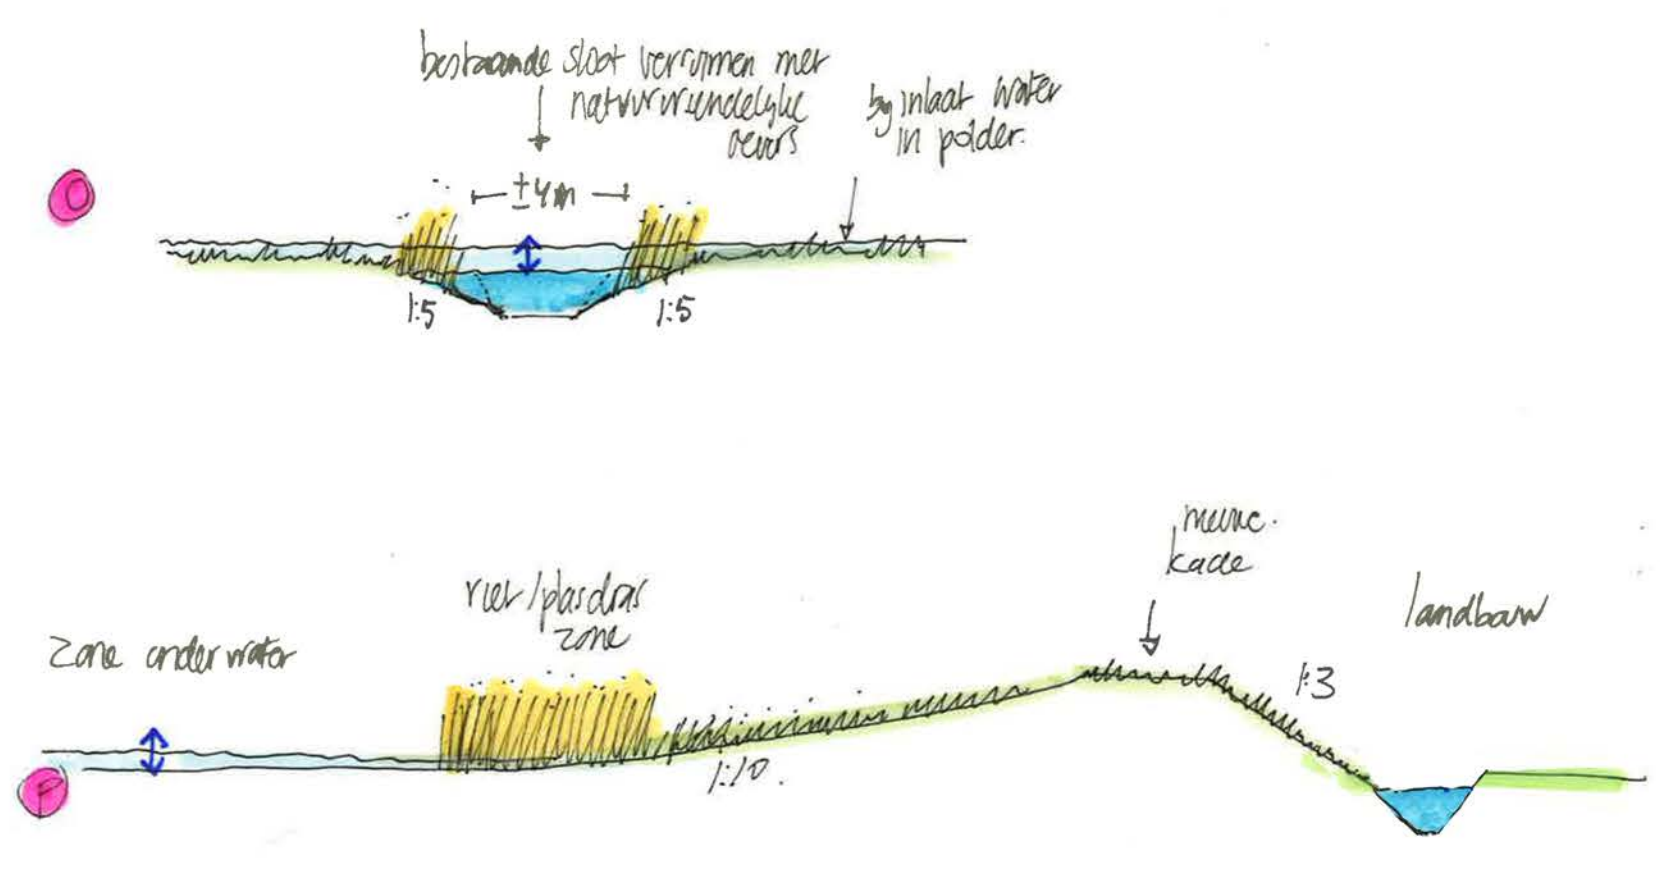 bestaande sloot verruimen met
natuurvriendelijke
oevers
bij inlaat water
in polder.
O
±4m
1:5
1:5
nieuwe
kade
riet/plasdras
zone
landbouw
zone onder water
1:3
P
1:10.